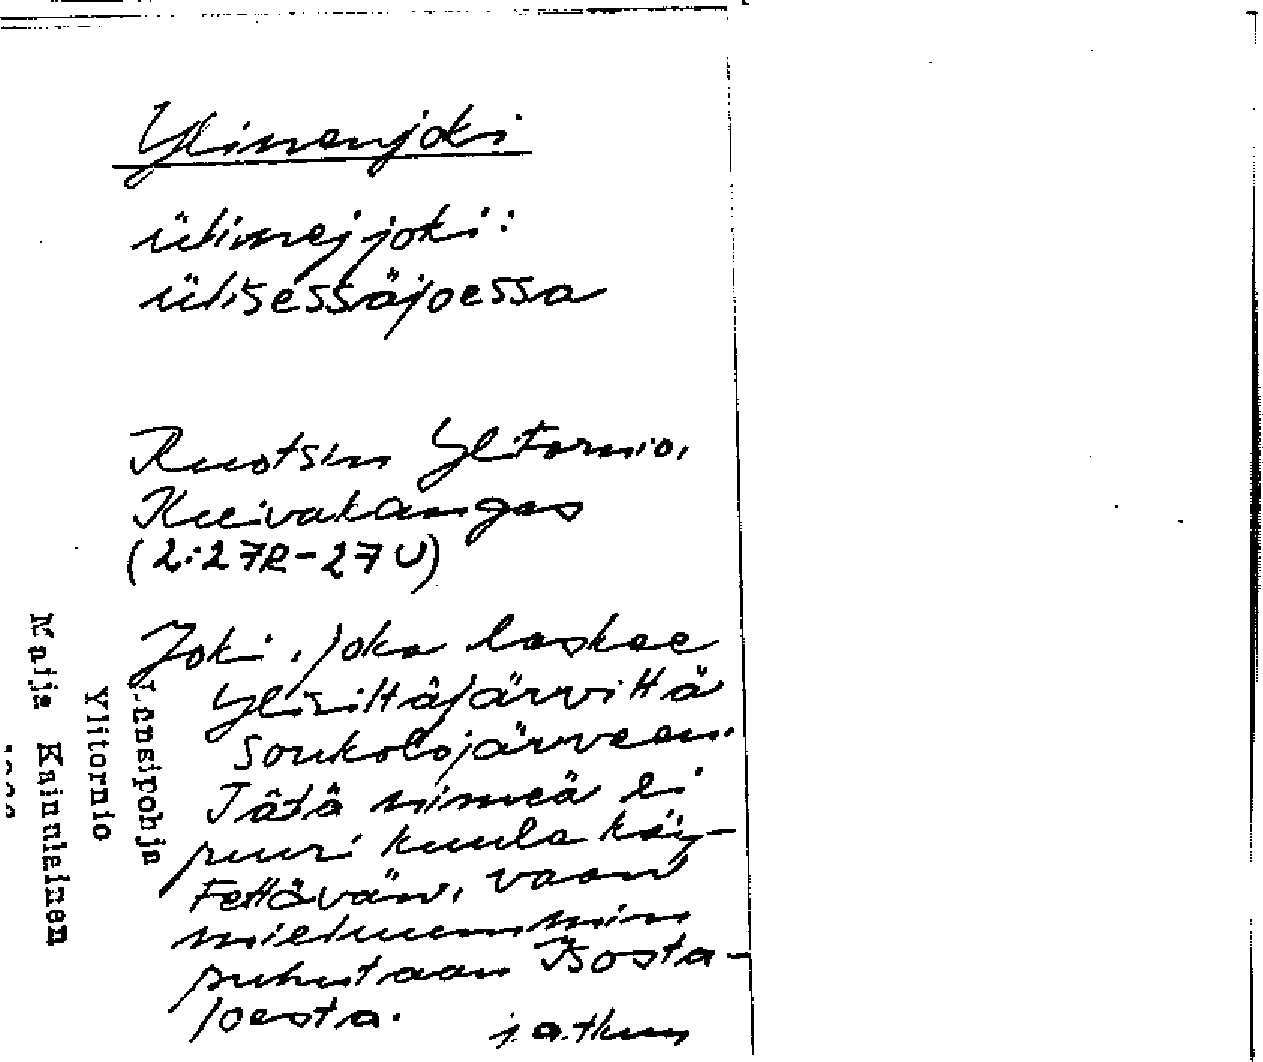 Ylinenjoki
ülinejjoki:
ülisessäjoessa
Ruotsin Ylitornio,
Kuivakangas
(2:27R-27U)
Joki, joka laskee
Ylisiltäjärviltä
Soukolojärveen.
Tätä nimeä ei
juuri kuule käy-
tettävän, vaan
mieluummin
puhutaan Isosta-
joesta.
jatkuu
Länsipohja
Ylitornio
Maija Kainulainen